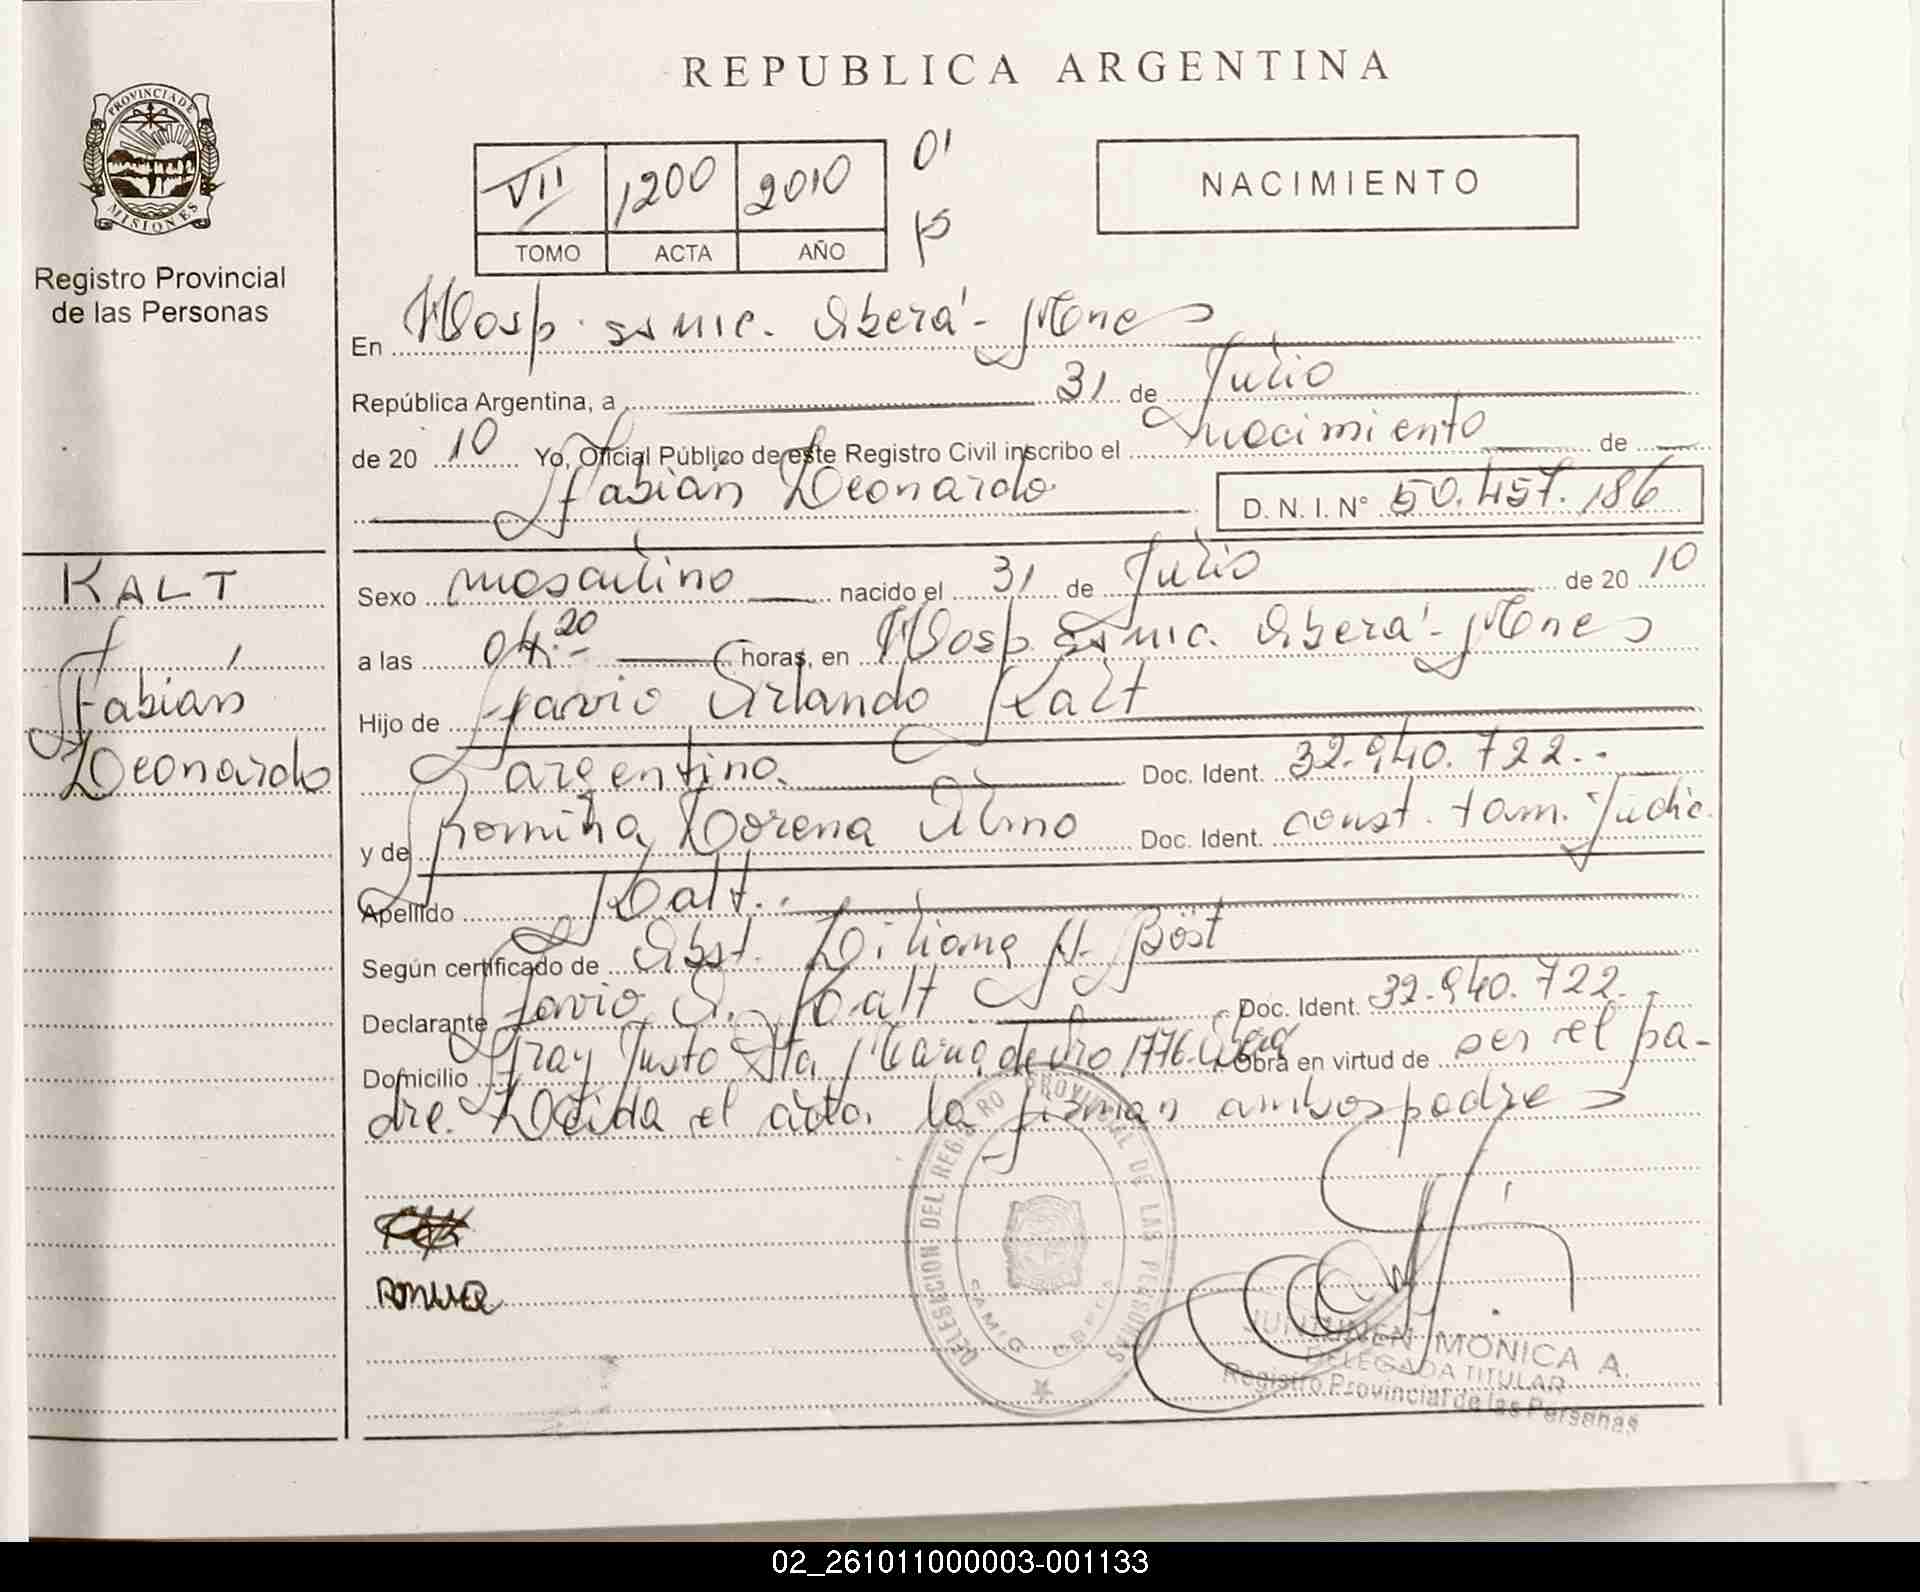 REPUBLICA ARGENTINA
PROVINCIA DE
MISIONES
Registro Provincial
de las Personas
VII 1200 2010 01
TOMO ACTA AÑO
NACIMIENTO
En Hosp. ssmic. Oberá - Mnes
República Argentina, a 31 de Julio
de 20 10 Yo, Oficial Público de este Registro Civil inscribo el nacimiento de
Fabián Leonardo
D. N. I. N° 50.457.186
KALT
Fabián
Leonardo
Sexo masculino nacido el 31 de Julio de 20 10
a las 04.20 horas, en Hosp ssmic. Oberá - Mnes
Hijo de Favio Orlando Kalt
argentino. Doc. Ident. 32.940.722.-
y de Romina Lorena Almo Doc. Ident. const. tam. Judic.
Apellido Kalt.
Según certificado de Obst. Liliana H. Böst
Declarante Favio O. Kalt Doc. Ident. 32.940.722.-
Domicilio Fray Justo Sta. Maria de Oro 1776. Obra en virtud de ser el pa-
dre. Leída el acta, la firman ambos padres
DELEGACION DEL REGISTRO PROVINCIAL DE LAS PERSONAS
JUNTUNEN MONICA A.
DELEGADA TITULAR
Registro Provincial de las Personas
02_261011000003-001133